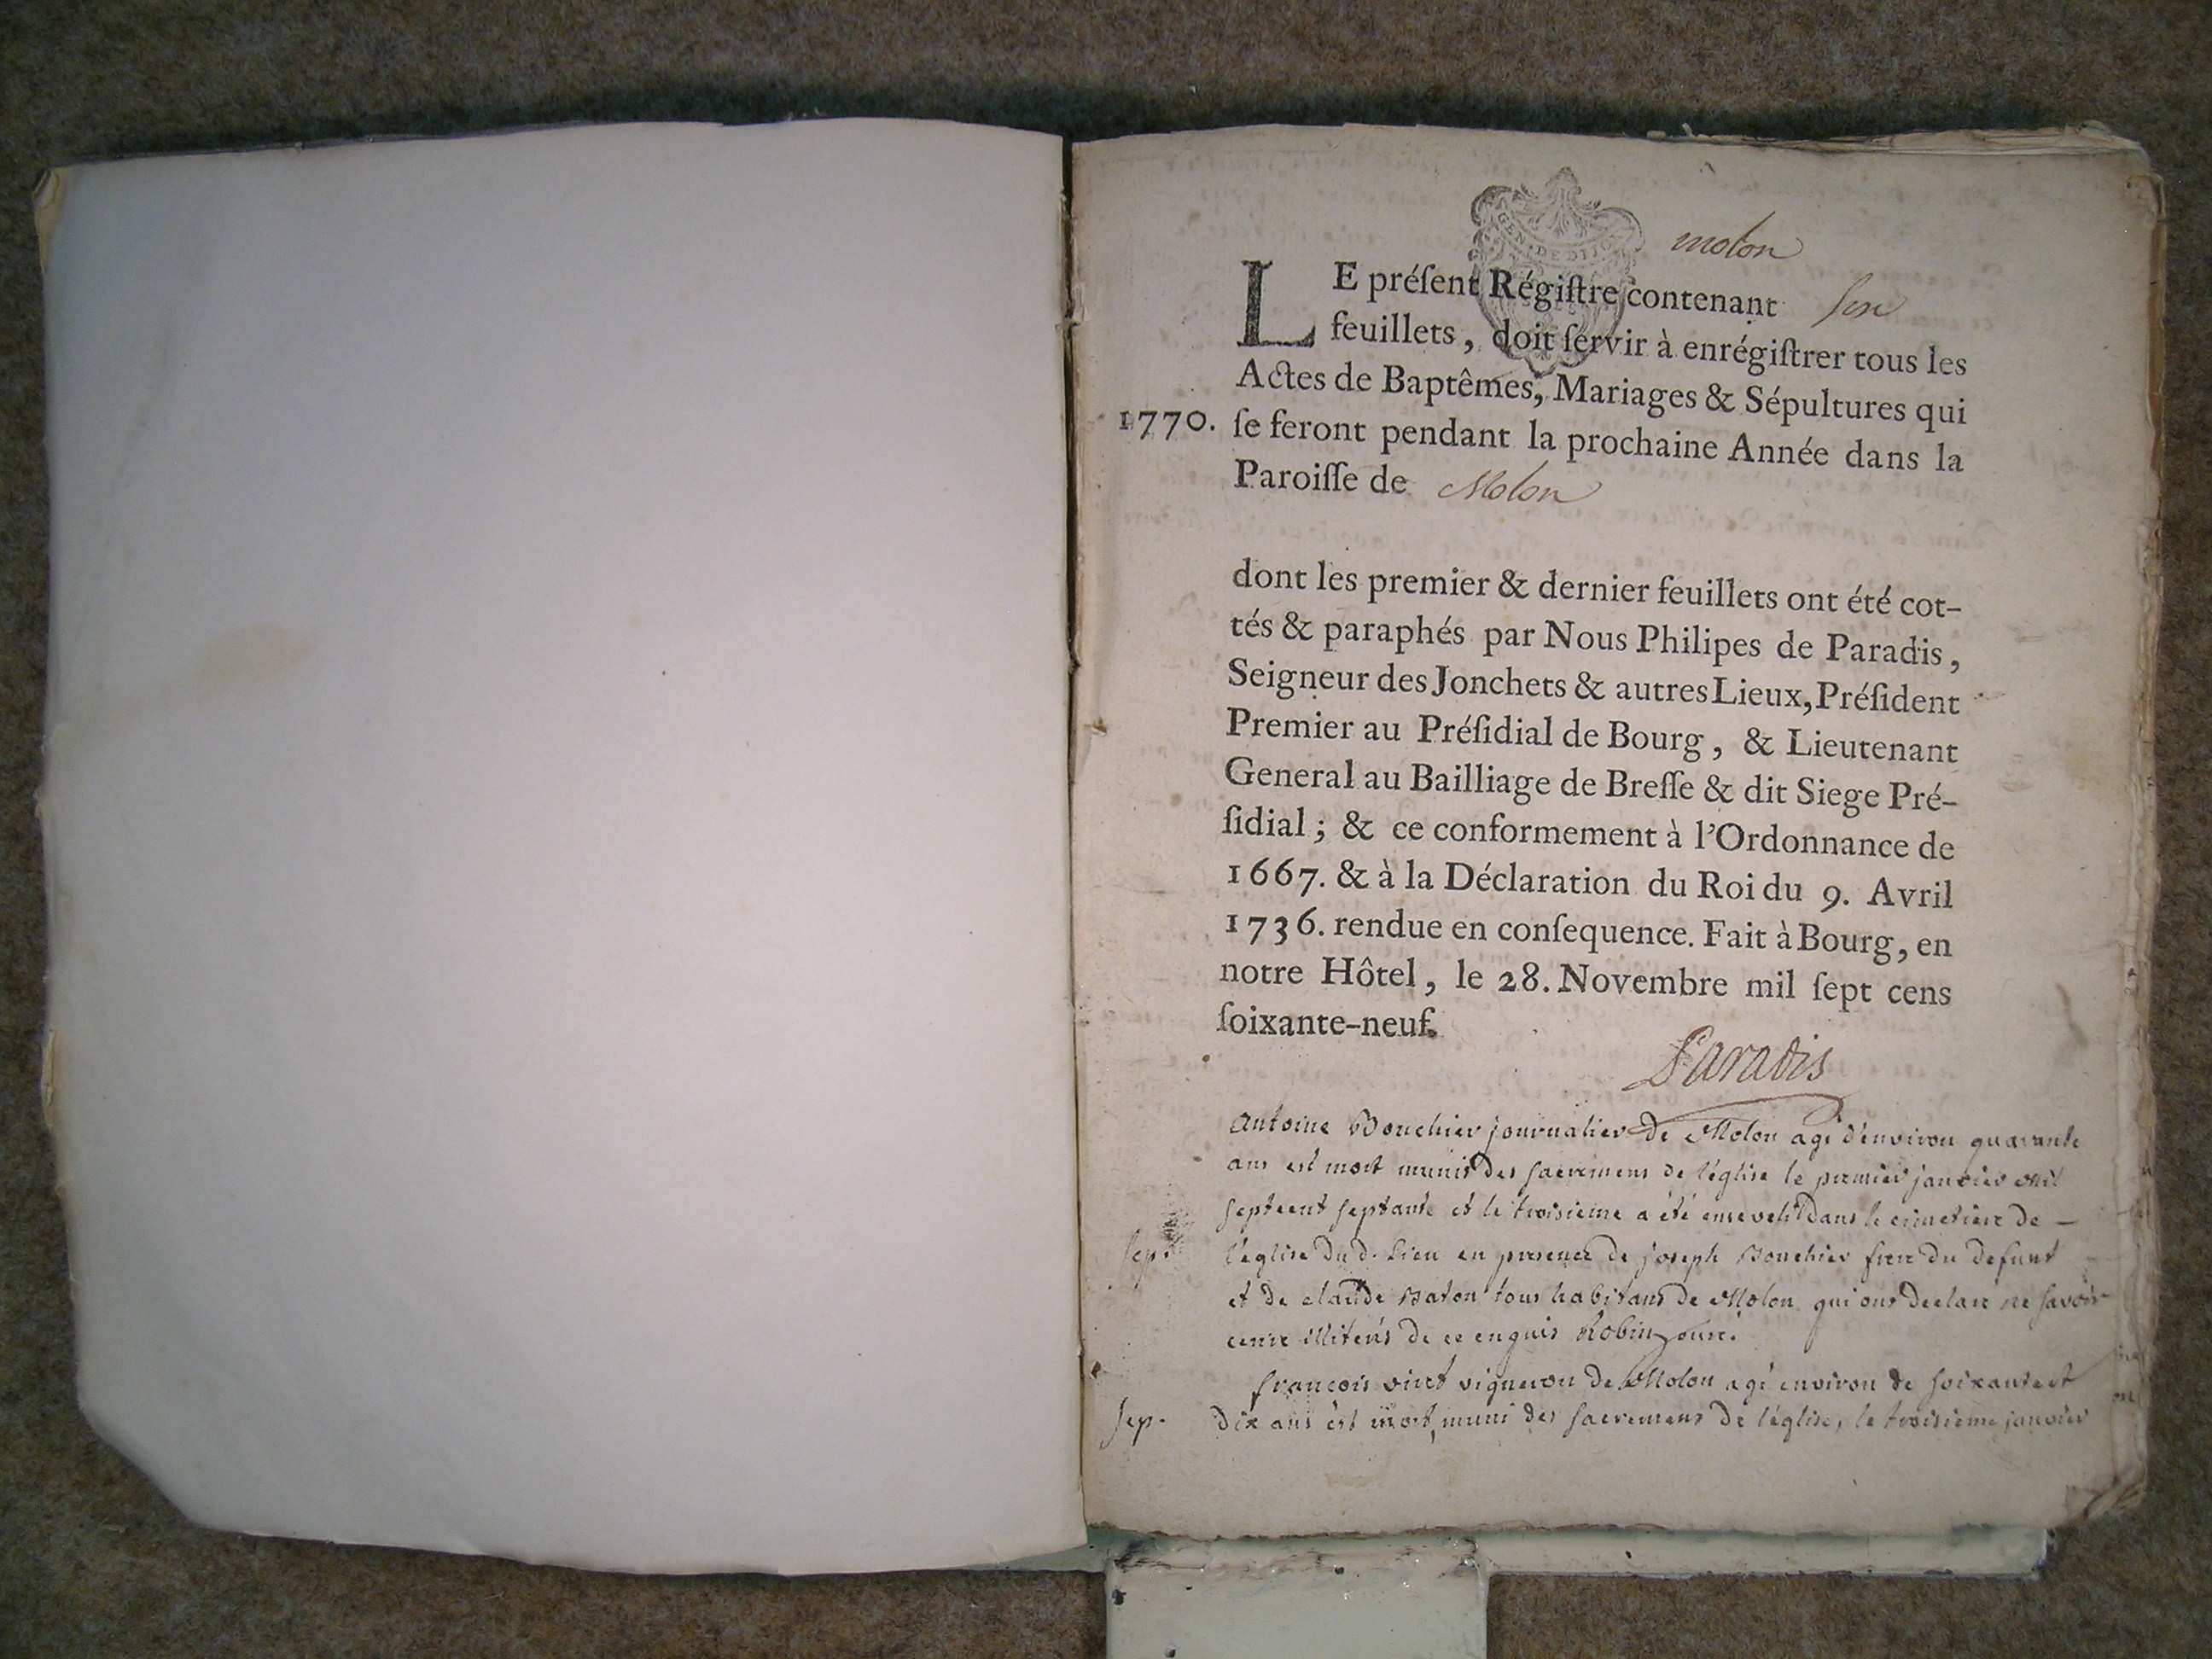 GEN. DE DIJON
molon
LE préſent Régiſtre contenant
feuillets, doit ſervir à enrégiſtrer tous les
Actes de Baptêmes, Mariages & Sépultures qui
1770. ſe feront pendant la prochaine Année dans la
Paroiſſe de Molon
dont les premier & dernier feuillets ont été cot-
tés & paraphés par Nous Philipes de Paradis,
Seigneur des Jonchets & autres Lieux, Préſident
Premier au Préſidial de Bourg, & Lieutenant
General au Bailliage de Breſſe & dit Siege Pré-
ſidial; & ce conformement à l'Ordonnance de
1667. & à la Déclaration du Roi du 9. Avril
1736. rendue en conſequence. Fait à Bourg, en
notre Hôtel, le 28. Novembre mil ſept cens
ſoixante-neuf.
Paradis
antoine Bouchier journalier de Molon agé d'environ quarante
ans est mort munis des sacremens de l'église le premier janvier mil
septcent septante et le troisieme a été enseveli dans le cimetiere de
sep. l'église du d. lieu en presence de joseph Bouchier frere du defunt
et de claude Baton tous habitans de Molon qui ont declaré ne savoir
de ce enquis Robin curé.
francois vint vigneron de Molon agé environ de soixante et
sep. dix ans est mort, muni des sacremens de l'église, le troisieme janvier